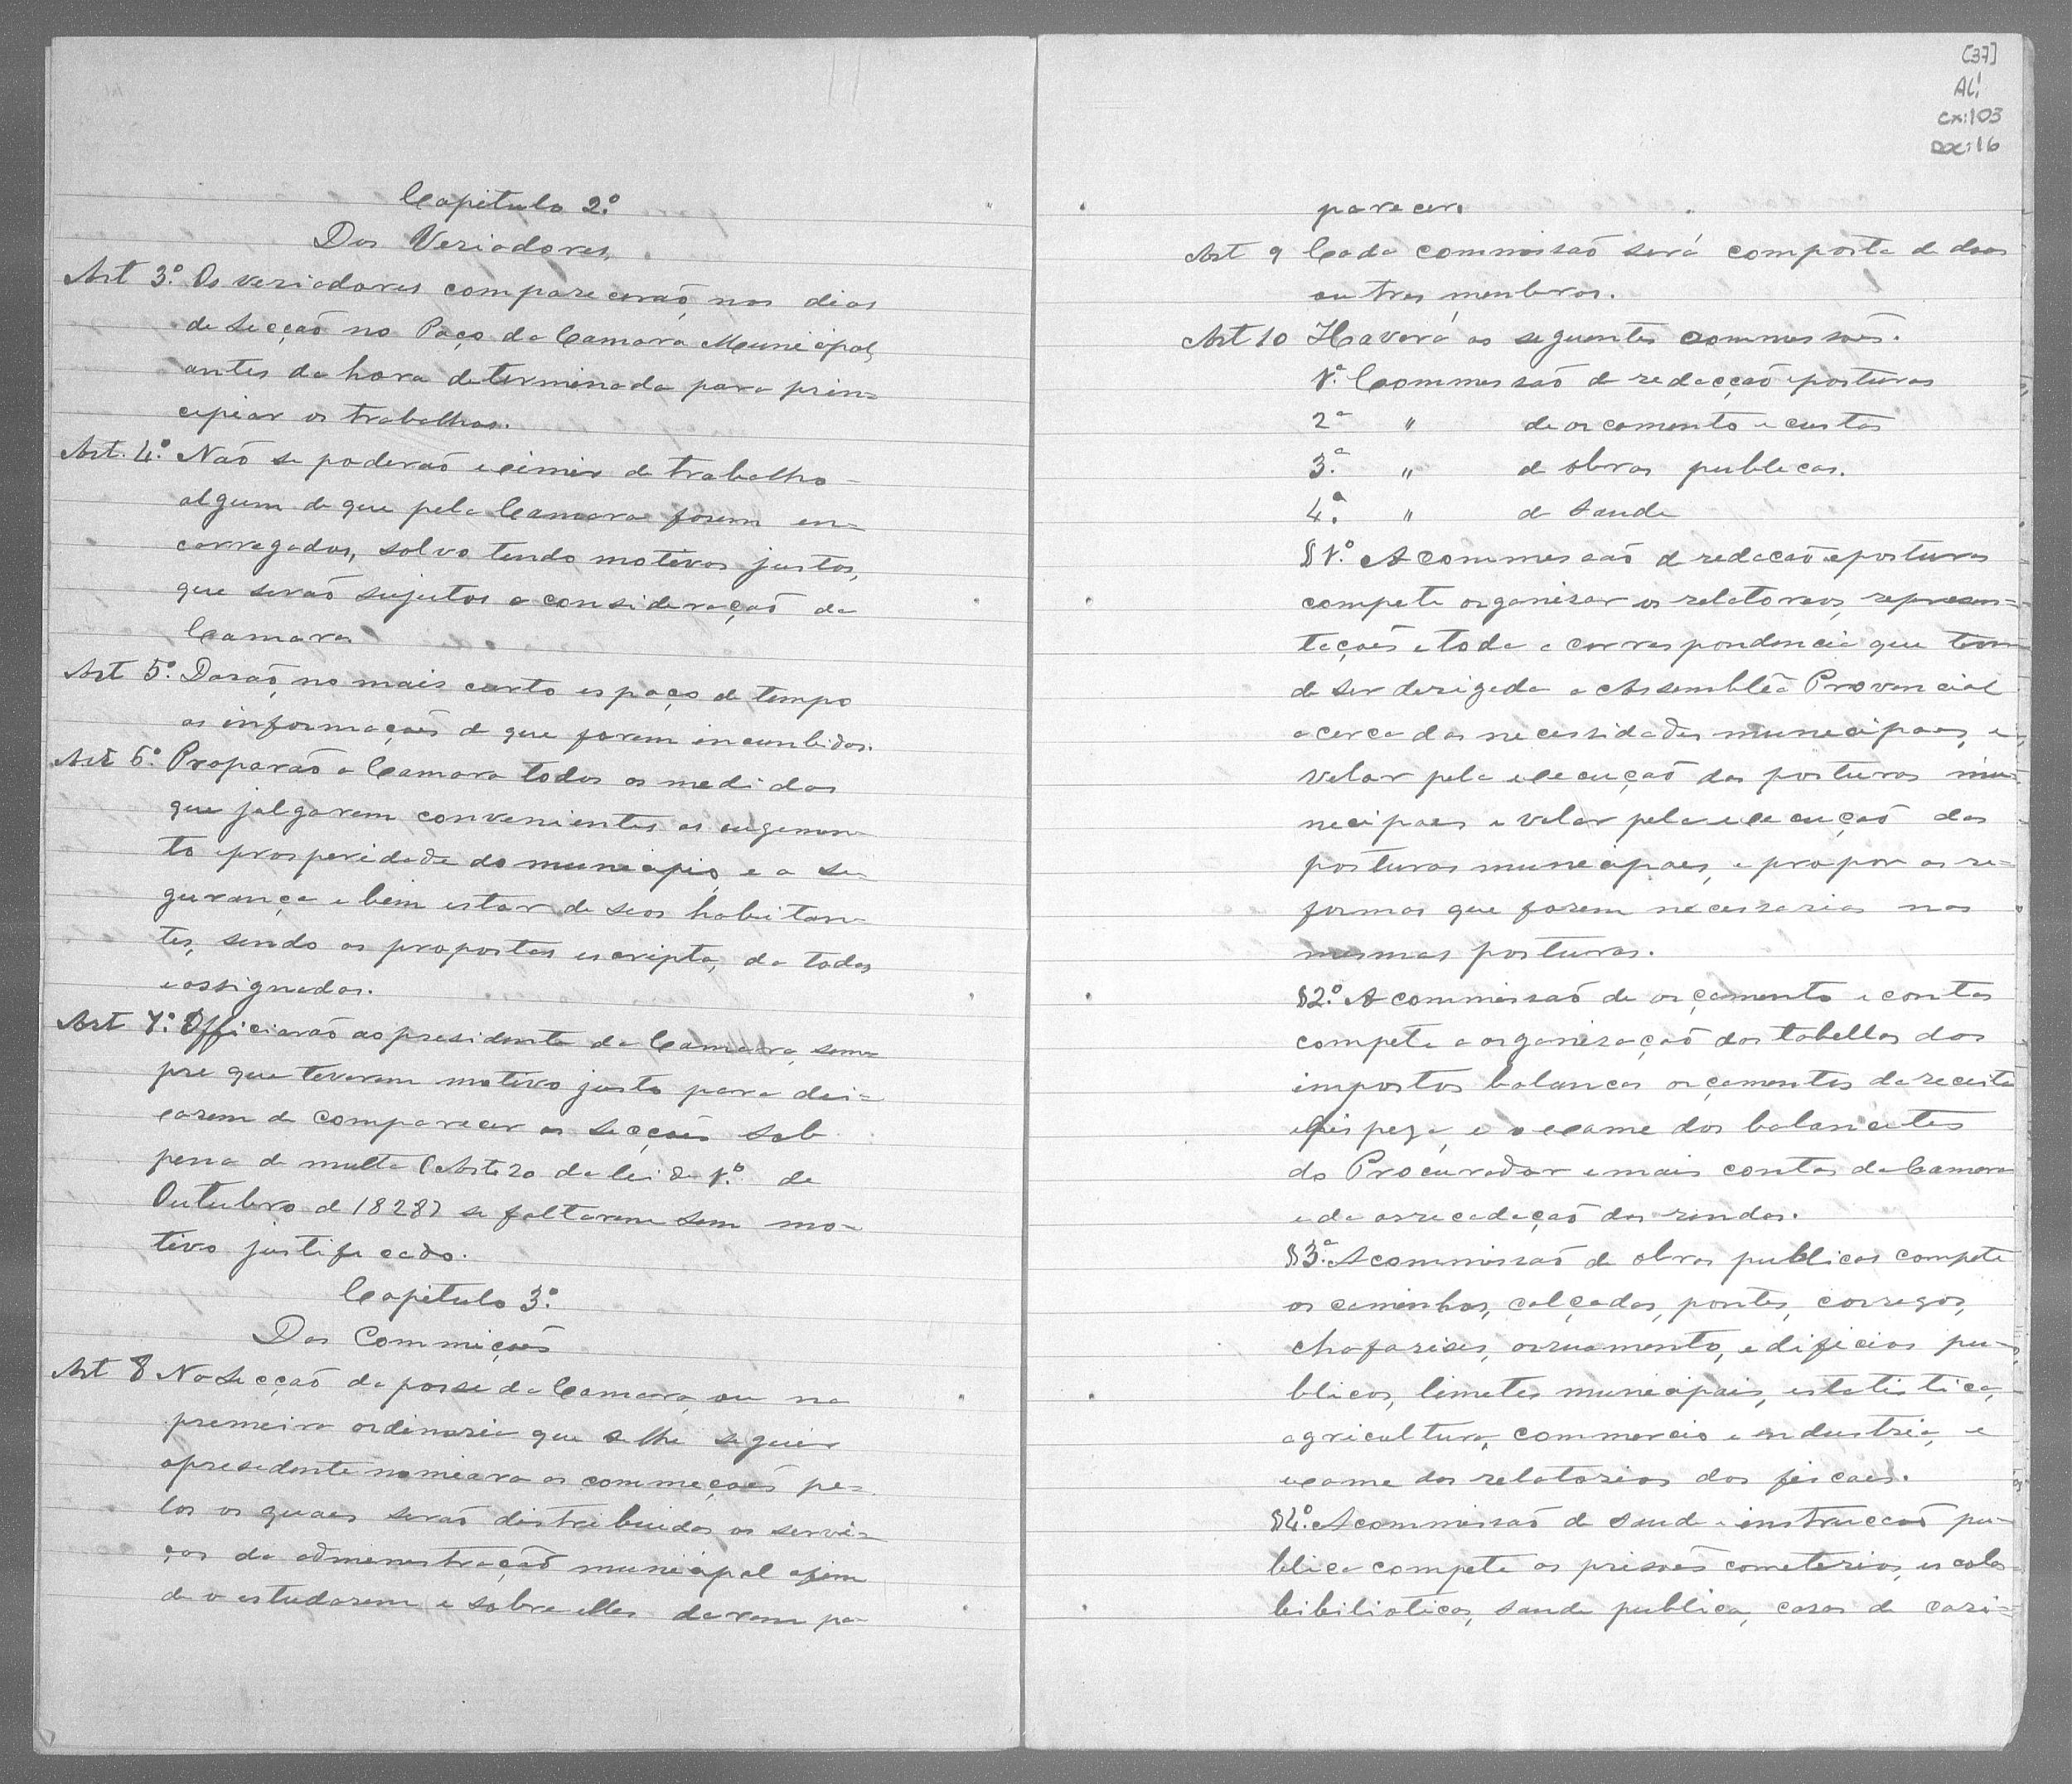 Capitulo 2º
Dos Veriadores
Art 3º. Os veriadores comparecerão, nos dias
de Secção no Paço da Camara Municipal,
antes da hora determinada para prin=
cipiar os trabalhos.
Art. 4º. Não se poderão eximir de trabalho
algum de que pela Camara forem en=
carregados, salvo tendo motivos justos,
que serão sujeitos a consideração da
Camara
Art 5º. Darão, no mais curto espaço de tempo
as informações de que forem incumbidos.
Art 6º. Proporão a Camara todas as medidas
que julgarem convenientes ao augemen=
to e prosperidade do municipio, e a se=
gurança e bem estar de seos habitan=
tes, sendo as propostas escripta, da todas
e assignadas.
Art 7º. Officiarão ao presidente da Camara, sem=
pre que teverem motivo justo para dei=
xarem de comparecer as secções sob
pena de multa (Arte 20 da lei de 1º. de
Outubro de 1828) se faltarem sem mo=
tivo justificado.
Capitulo 3º.
Das Commições
Art 8 Na Secção da posse da Camara, ou na
premeira ordinaria que se lhe seguir
o presedente nomeara as commeções pe=
los os quaes serão distribuidos os servi=
ços da admenestração municipal afim
de o estudarem e sobre elles darem pa=
[37]
AL!
cx:103
Doc:16
parecer.
Art 9 Cada commissão será composta de dous
ou tres menbros.
Art 10 Haverá as seguentes commessões.
1ª. Commessão de redacção e posturas
2ª " de orcamento e custas
3ª. " de obras publicas.
4ª. " de Saude
§1º. A commessão de redacão e posturas
compete organisar os relatoreos, represen=
tações e toda a correspondencia que tem
de ser derigeda a Assembléa Provencial
acerca das necessidades munecipaes, e
velar pela execução das posturas mu=
necipaes e velar pela execução das
posturas munecipaes, e propor as re=
formas que forem necessarias nas
mesmas posturas.
§2º. A commissão de orçamento e contas
compete a organisação das tabellas dos
impostos balancos orçamentos da receita
e dispeza, e o exame dos balancetes
do Procurador e mais contas da Camara
e da arrecadação das rendas.
§3ª. A commissão de obras publicas compete
os caminhos, calçadas, pontes, corregos,
chafarises, arruamento, edificios pu=
blicos, limetes municipais, estatistica,
agricultura, commercio e industria, e
exame dos relatorios dos fiscaes.
§4º. A commissão de saude e instrucção pu=
blica compete as prisões cemeterios, escolas
bibiliotica, saude publica, casas de cari=